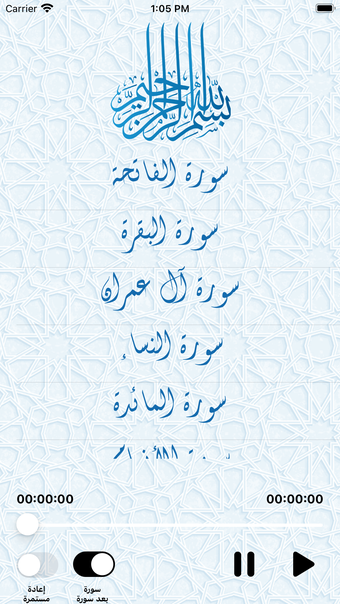 Carrier 1:05 PM
بسم الله الرحمن الرحيم
سورة الفاتحة
سورة البقرة
سورة آل عمران
سورة النساء
سورة المائدة
00:00:00 00:00:00
إعادة مستمرة
سورة بعد سورة